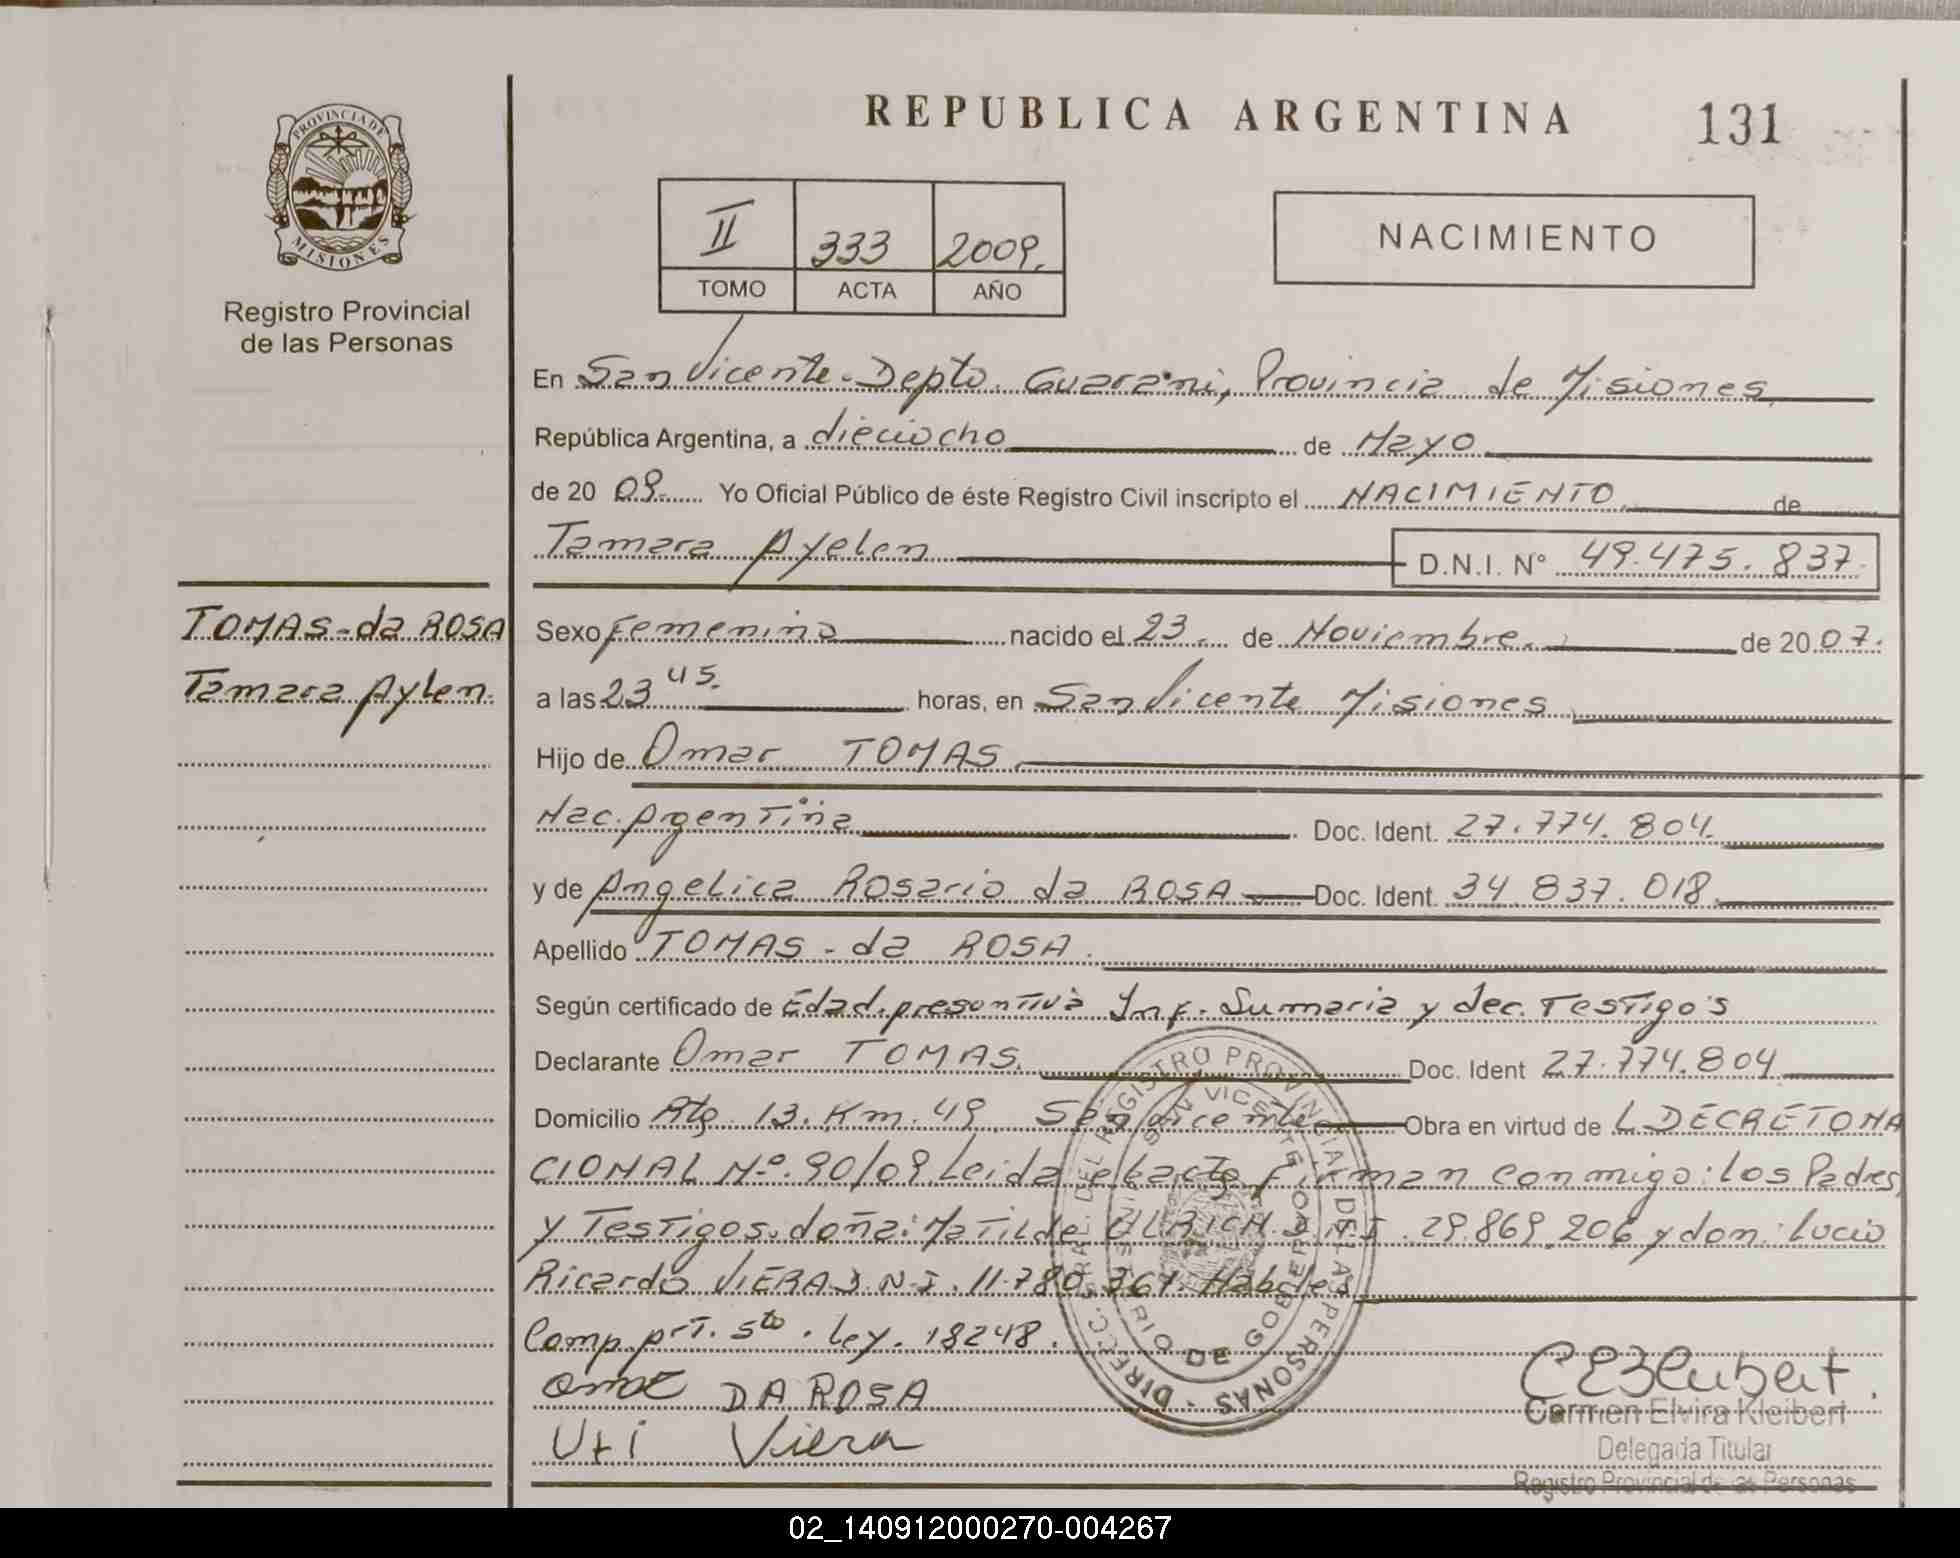 PROVINCIA DE
MISIONES
Registro Provincial
de las Personas
REPUBLICA ARGENTINA 131
II 333 2009.
TOMO ACTA AÑO
NACIMIENTO
En San Vicente - Depto. Guarani, Provincia de Misiones
República Argentina, a dieciocho de Mayo
de 20 09. Yo Oficial Público de éste Registro Civil inscripto el NACIMIENTO de
Tamara Ayelen D.N.I. N° 49.475.837.
TOMAS - da ROSA
Tamara Aylen.
Sexo Femenino nacido el 23 de Noviembre. de 20 07.
a las 23 45. horas, en San Vicente Misiones
Hijo de Omar TOMAS
Nac. Argentina Doc. Ident. 27.774.804.
y de Angelica Rosario da ROSA Doc. Ident. 34.837.018.
Apellido TOMAS - da ROSA.
Según certificado de Edad presuntiva Inf. Sumaria y dec. Testigo's
Declarante Omar TOMAS. Doc. Ident 27.774.804
Domicilio Rta. 13. Km. 49 San Vicente Obra en virtud de L DECRETO NA
CIONAL Nº 90/09 Leida el acta firman conmigo: los Padres
y Testigos. doña: Matilde ULRICH. D.N.I. 29.869.206 y don: Lucio
Ricardo VIERA D.N.I. 11.780.361. Habiles
Comp. prt. 5to. Ley. 18248.
DA ROSA
Viera
DIRECC. GRAL. DEL REGISTRO PROVINCIAL DE LAS PERSONAS
SAN VICENTE
MINISTERIO DE GOBIERNO
Carmen Elvira Kleibert
Delegada Titular
Registro Provincial de las Personas
02_140912000270-004267